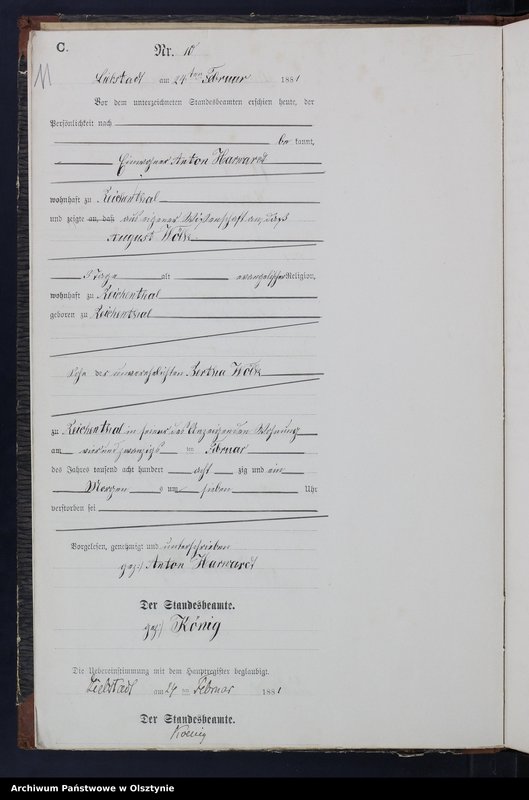 C.
Nr. 10
11
Liebstadt am 24ten Februar 1881
Vor dem unterzeichneten Standesbeamten erschien heute, der
Persönlichkeit nach
be kannt,
Einwohner Anton Harwardt
wohnhaft zu Reichenthal
und zeigte an, daß aus eigener Wissenschaft an, daß
August Wölk
Tage alt evangelischer Religion,
wohnhaft zu Reichenthal
geboren zu Reichenthal
Sohn der unverehelichten Bertha Wölk
zu Reichenthal in seiner des Anzeigenden Wohnung
am vierundzwanzigs ten Februar
des Jahres tausend acht hundert acht zig und ein
Morgen s um sieben Uhr
verstorben sei
Vorgelesen, genehmigt und unterschrieben
gez.) Anton Harwardt
Der Standesbeamte.
gez) König
Die Uebereinstimmung mit dem Hauptregister beglaubigt.
Liebstadt am 24 ten Februar 1881
Der Standesbeamte.
Koenig
Archiwum Państwowe w Olsztynie